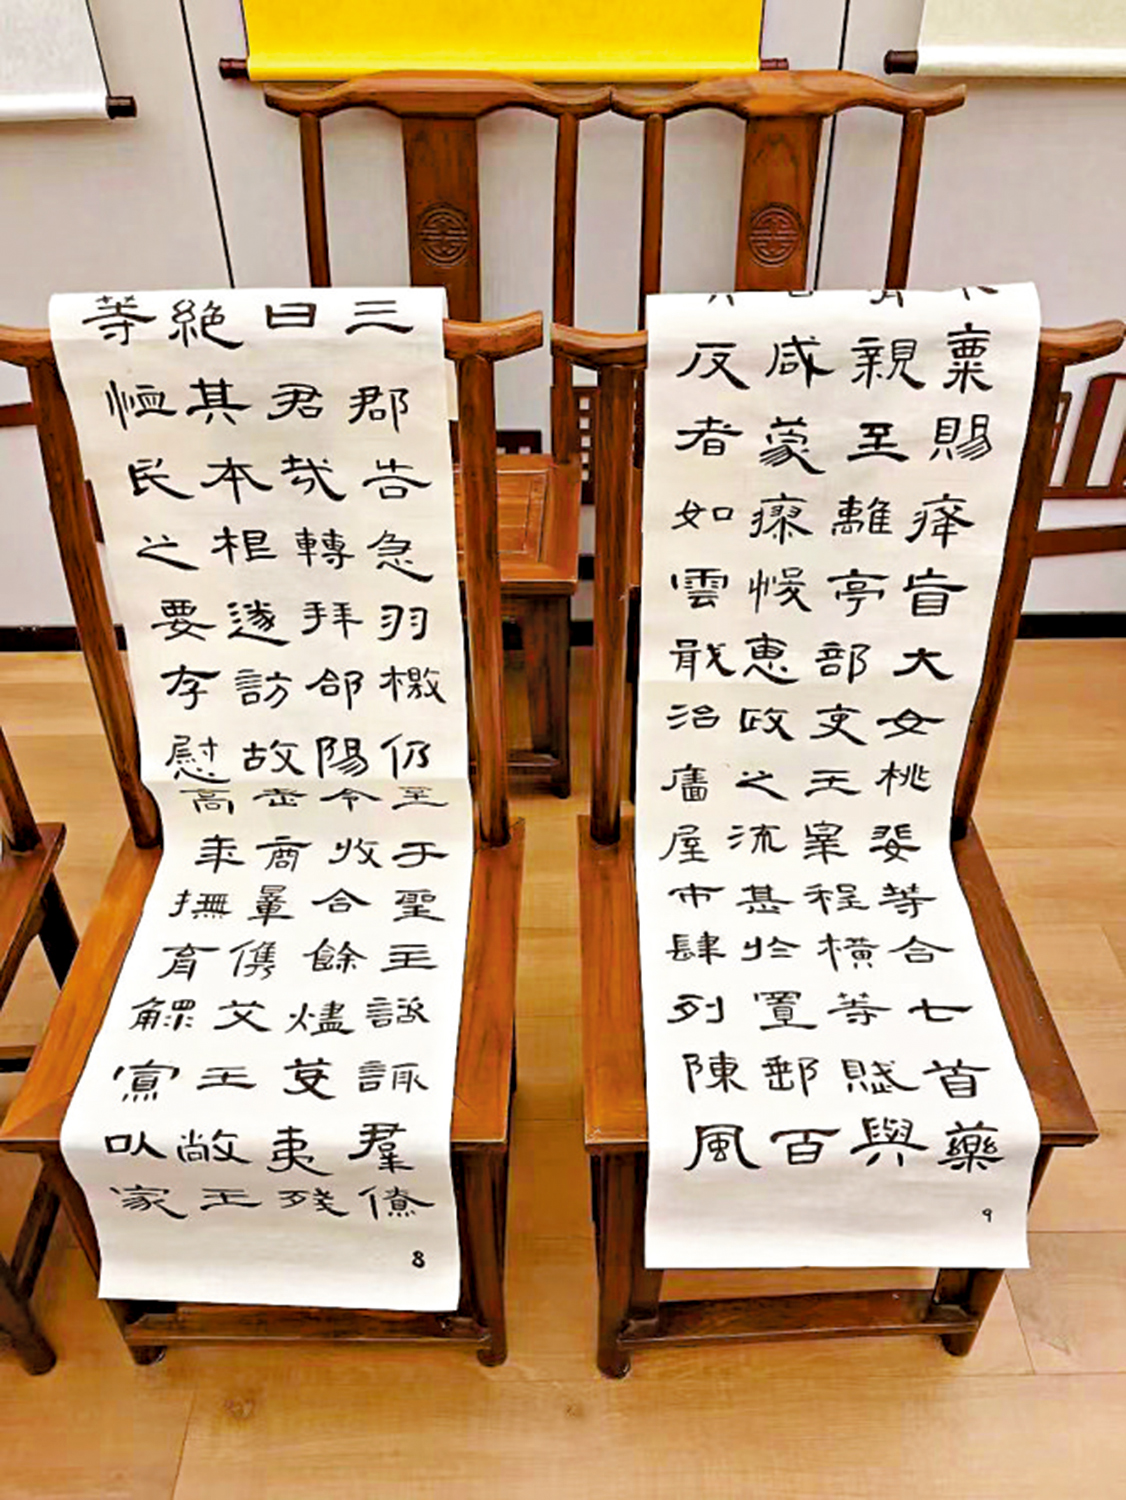 三郡告急羽檄仍至于聖主諮諏羣僚
曰君哉轉拜郃陽令收合餘燼芟夷殘
絕其本根遂訪故老商量儁艾王敞王
等恤民之要存慰高年撫育鰥寡以家
8
粟賜癃盲大女桃婓等合七首藥
親至離亭部吏王皋程橫等賦與
咸蒙瘳悛惠政之流甚於置郵百
反者如雲戢治廧屋市肆列陳風
9